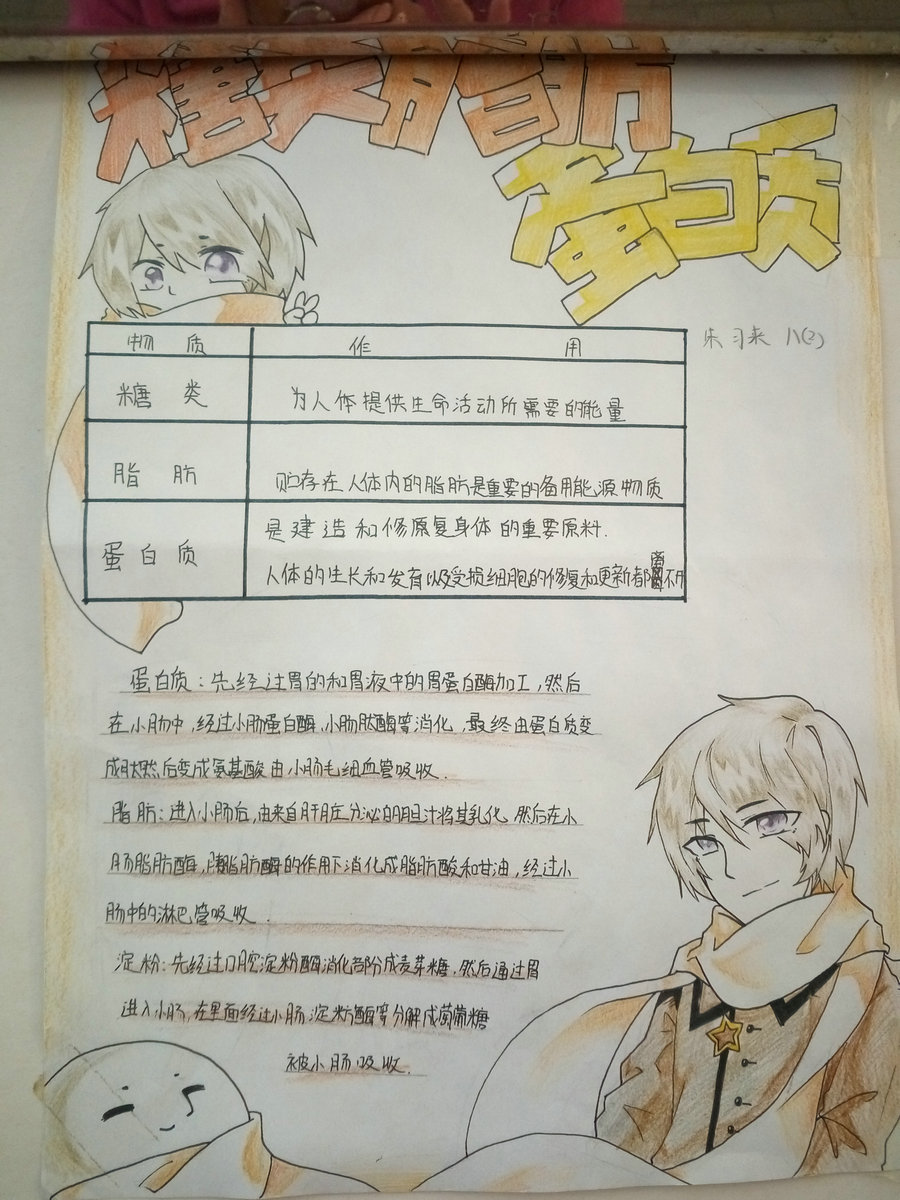 糖类脂肪
蛋白质
朱习来 八(2)
物质 作用
糖类 为人体提供生命活动所需要的能量
脂肪 贮存在人体内的脂肪是重要的备用能源物质
蛋白质 是建造和修原复身体的重要原料.
人体的生长和发育以及受损细胞的修复和更新都离不开
蛋白质:先经过胃的和胃液中的胃蛋白酶加工,然后
在小肠中,经过小肠蛋白酶,小肠肽酶等消化,最终由蛋白质变
成肽然后变成氨基酸由小肠毛细血管吸收.
脂肪:进入小肠后,由来自肝脏分泌的胆汁将其乳化,然后在小
肠脂肪酶,胰脂肪酶的作用下消化成脂肪酸和甘油,经过小
肠中的淋巴管吸收.
淀粉:先经过口腔淀粉酶消化部分成麦芽糖,然后通过胃
进入小肠,在里面经过小肠淀粉酶等分解成葡萄糖
被小肠吸收.